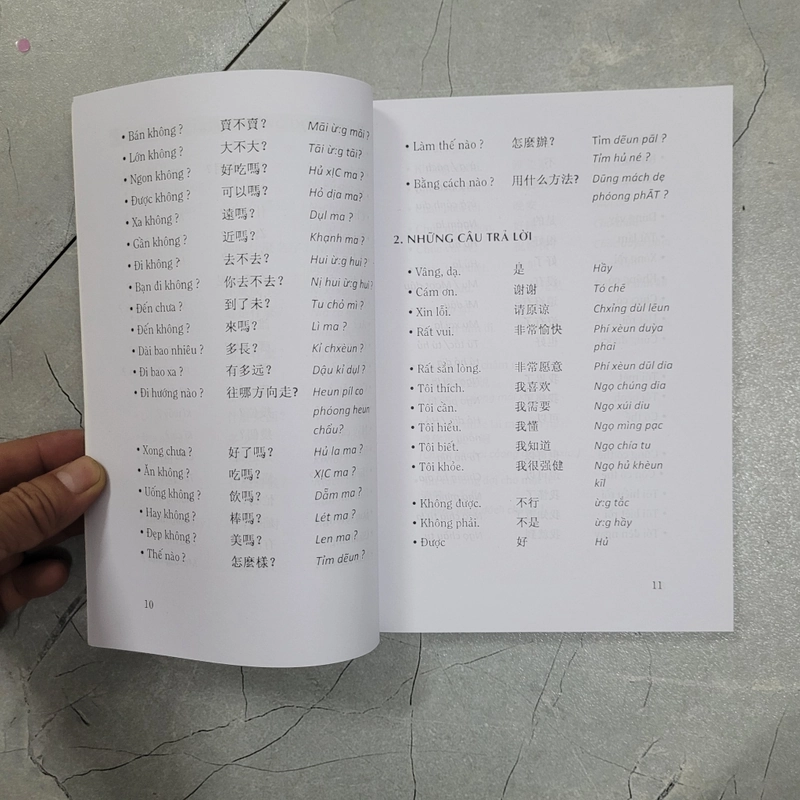 • Bán không ? 賣不賣? Mãi ừ:g mãi ?
• Lớn không ? 大不大? Tãi ừ:g tãi?
• Ngon không ? 好吃嗎? Hủ xỊC ma ?
• Được không ? 可以嗎? Hỏ dịa ma?
• Xa không ? 遠嗎? Dụl ma ?
• Gần không ? 近嗎? Khạnh ma ?
• Đi không ? 去不去? Hui ừ:g hui ?
• Bạn đi không ? 你去不去? Nị hui ừ:g hui?
• Đến chưa ? 到了未? Tu chỏ mì ?
• Đến không ? 來嗎? Lì ma ?
• Dài bao nhiêu ? 多長? Kỉ chxèun ?
• Đi bao xa ? 有多远? Dậu kỉ dụl ?
• Đi hướng nào ? 往哪方向走? Heun píl co
phóong heun
chấu?
• Xong chưa ? 好了嗎? Hủ la ma ?
• Ăn không ? 吃嗎? XỊC ma ?
• Uống không ? 飲嗎? Dẫm ma ?
• Hay không ? 棒嗎? Lét ma ?
• Đẹp không ? 美嗎? Len ma ?
• Thế nào ? 怎麼樣? Tỉm dẽun ?
10
• Làm thế nào ? 怎麼辦? Tìm dẽun pãl ?
Tỉm hủ né ?
• Bằng cách nào ? 用什么方法? Dũng mách dẹ
phóong phẤT ?
2. NHỮNG CÂU TRẢ LỜI
• Vâng, dạ. 是 Hầy
• Cám ơn. 谢谢 Tó chê
• Xin lỗi. 请原谅 Chxỉng dùl lẽun
• Rất vui. 非常愉快 Phí xèun duỳa
phai
• Rất sẵn lòng. 非常愿意 Phí xèun dũl dia
• Tôi thích. 我喜欢 Ngọ chủng dia
• Tôi cần. 我需要 Ngọ xúi diu
• Tôi hiểu. 我懂 Ngọ mìng pạc
• Tôi biết. 我知道 Ngọ chía tu
• Tôi khỏe. 我很强健 Ngọ hủ khèun
kĩl
• Không được. 不行 ừ:g tắc
• Không phải. 不是 ừ:g hầy
• Được 好 Hủ
11